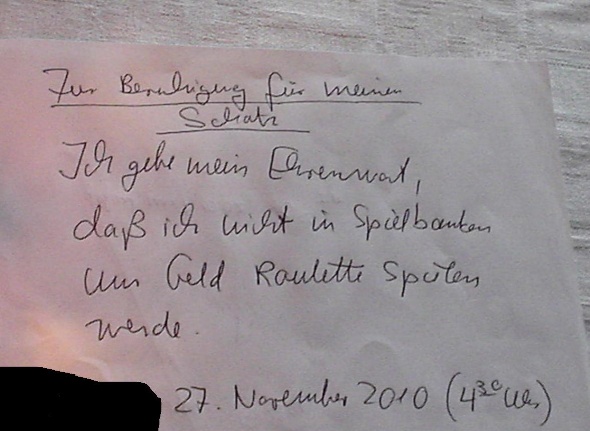 Zur Beruhigung für meinen
Schatz
Ich gebe mein Ehrenwort,
daß ich nicht in Spielbanken
um Geld Roulette Spielen
werde.
27. November 2010 (4³⁰ Uhr)